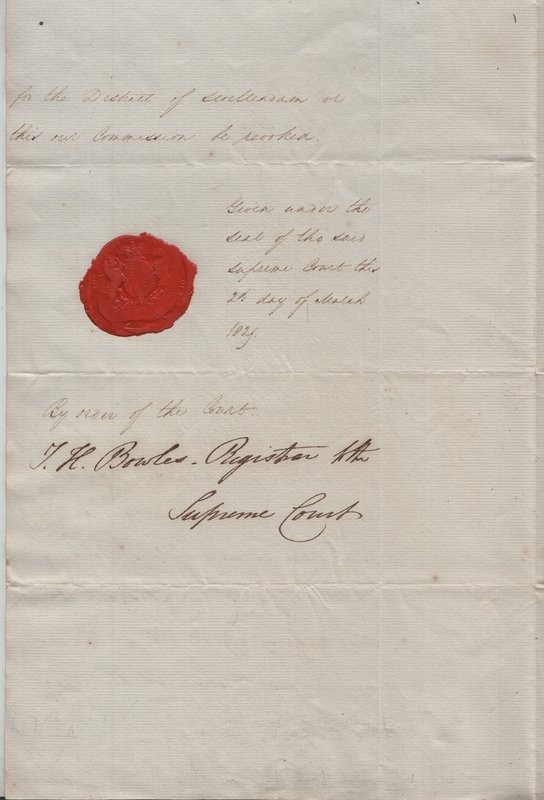 for the District of Swellendam or
this our Commission be revoked.
Given under the
seal of the said
Supreme Court this
day of March
By order of the Court.
T. H. Bowles. Registrar to the
Supreme Court